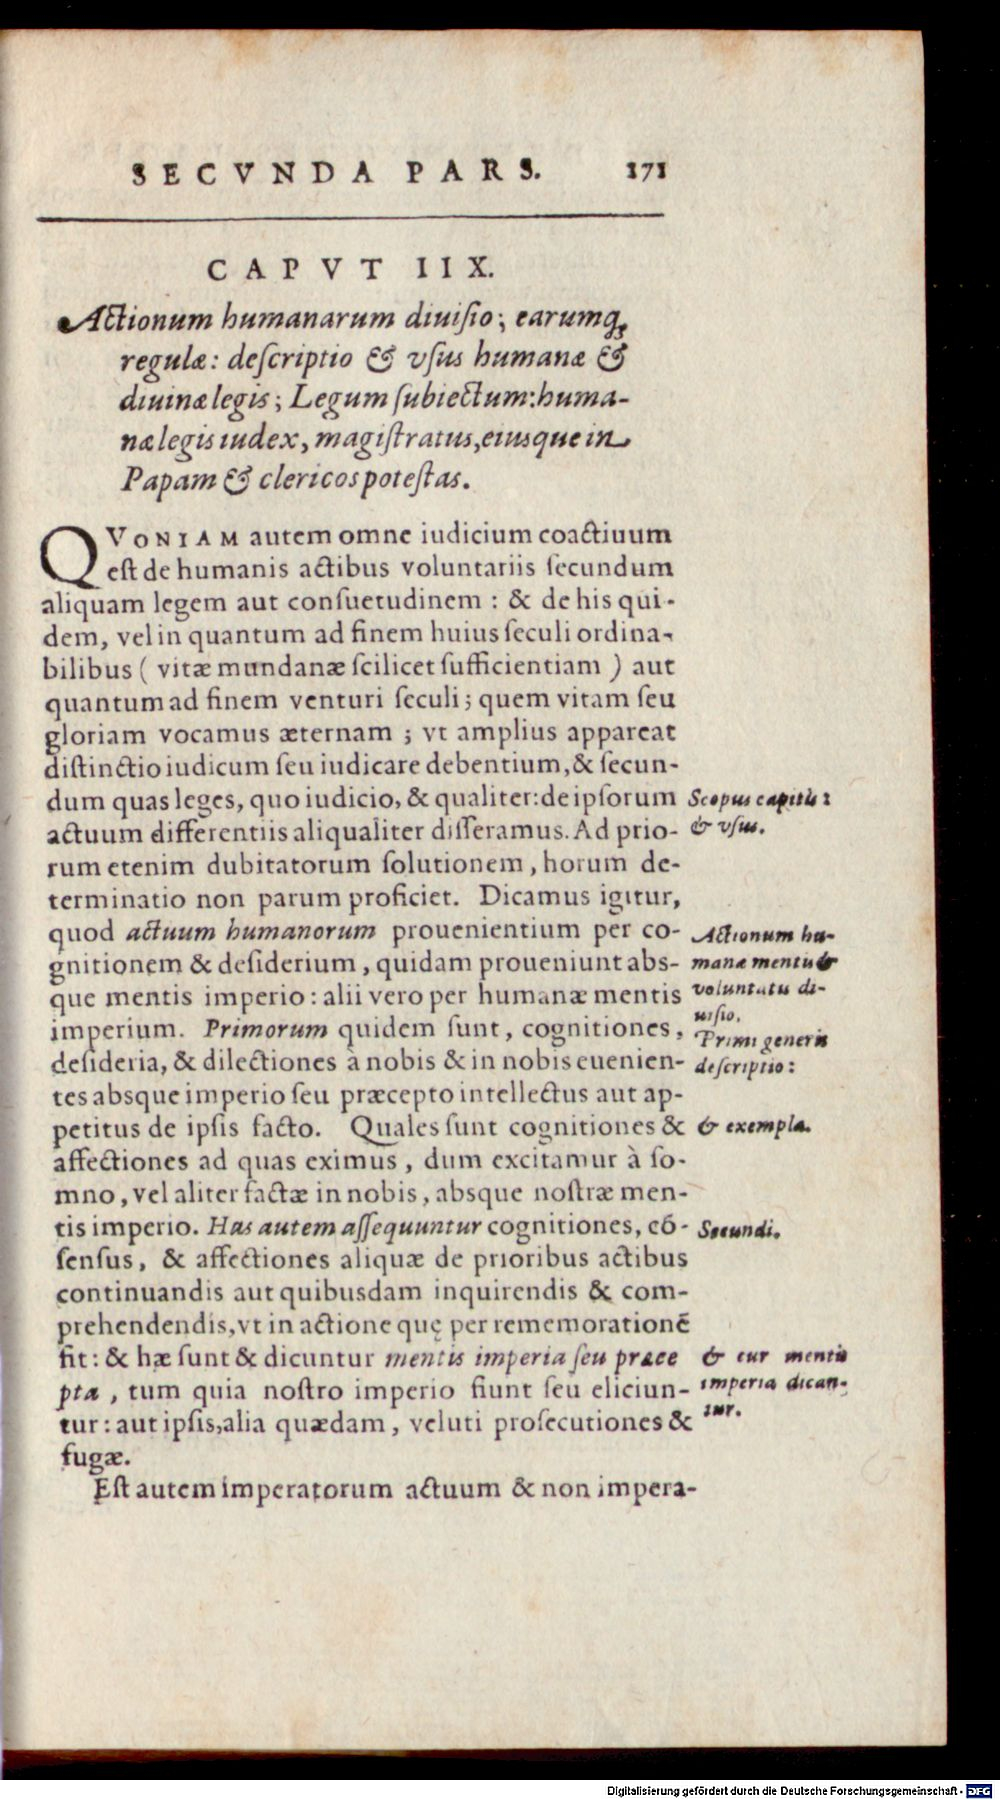 SECVNDA PARS. 171
CAPVT IIX.
Actionum humanarum diuiſio; earumq́;
regulæ: deſcriptio & vſus humanæ &
diuinæ legis; Legum ſubiectum: huma-
næ legis iudex, magiſtratus, eiusque in
Papam & clericos poteſtas.
QVONIAM autem omne iudicium coactiuum
eſt de humanis actibus voluntariis ſecundum
aliquam legem aut conſuetudinem : & de his qui-
dem, vel in quantum ad finem huius ſeculi ordina-
bilibus ( vitæ mundanæ ſcilicet ſufficientiam ) aut
quantum ad finem venturi ſeculi; quem vitam ſeu
gloriam vocamus æternam ; vt amplius appareat
diſtinctio iudicum ſeu iudicare debentium, & ſecun-
dum quas leges, quo iudicio, & qualiter: de ipſorum
Scopus capitis:
actuum differentiis aliqualiter diſſeramus. Ad prio-
& vſus.
rum etenim dubitatorum ſolutionem, horum de-
terminatio non parum proficiet. Dicamus igitur,
quod actuum humanorum prouenientium per co-
Actionum hu-
gnitionem & deſiderium, quidam proueniunt abs-
manæ mentis &
que mentis imperio: alii vero per humanæ mentis
voluntatis di-
uiſio.
imperium. Primorum quidem ſunt, cognitiones,
Primi generis
deſideria, & dilectiones à nobis & in nobis euenien-
deſcriptio:
tes absque imperio ſeu præcepto intellectus aut ap-
petitus de ipſis facto. Quales ſunt cognitiones &
& exempla.
affectiones ad quas eximus, dum excitamur à ſo-
mno, vel aliter factæ in nobis, absque noſtræ men-
tis imperio. Has autem aſſequuntur cognitiones, cō-
Secundi.
ſenſus, & affectiones aliquæ de prioribus actibus
continuandis aut quibusdam inquirendis & com-
prehendendis, vt in actione quę per rememorationē
fit: & hæ ſunt & dicuntur mentis imperia ſeu præce
& cur mentis
pta, tum quia noſtro imperio fiunt ſeu eliciun-
imperia dican-
tur: aut ipſis, alia quædam, veluti proſecutiones &
tur.
fugæ.
Eſt autem imperatorum actuum & non impera-
Digitalisierung gefördert durch die Deutsche Forschungsgemeinschaft - DFG